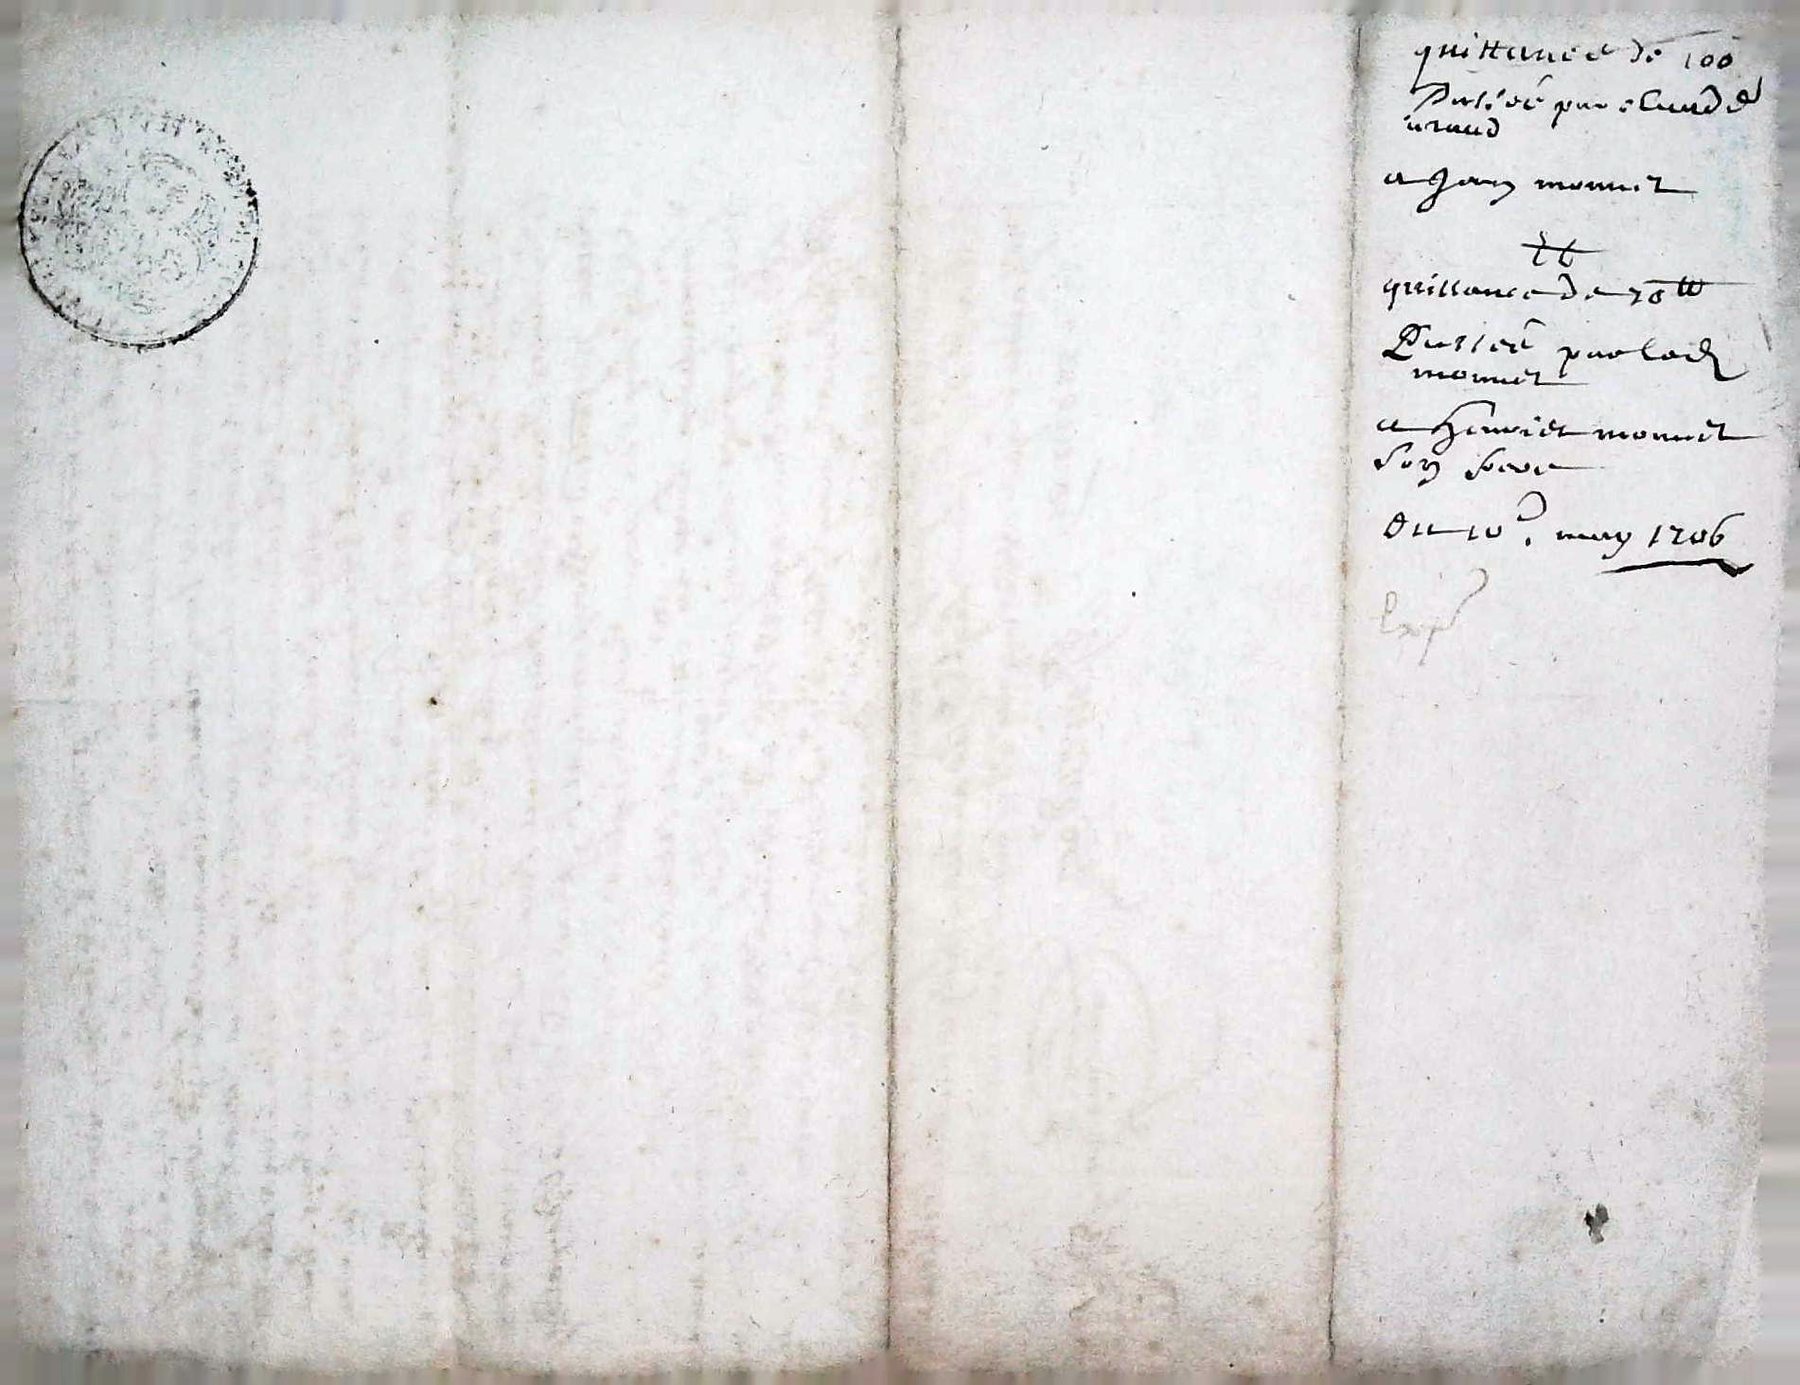 quittance de 100
Passée par claude
a Jean monnet
Et
quittance de 70 ₶
Passée par led
monnet
a henriet monnet
son frere
Du 10e. may 1706
Exp